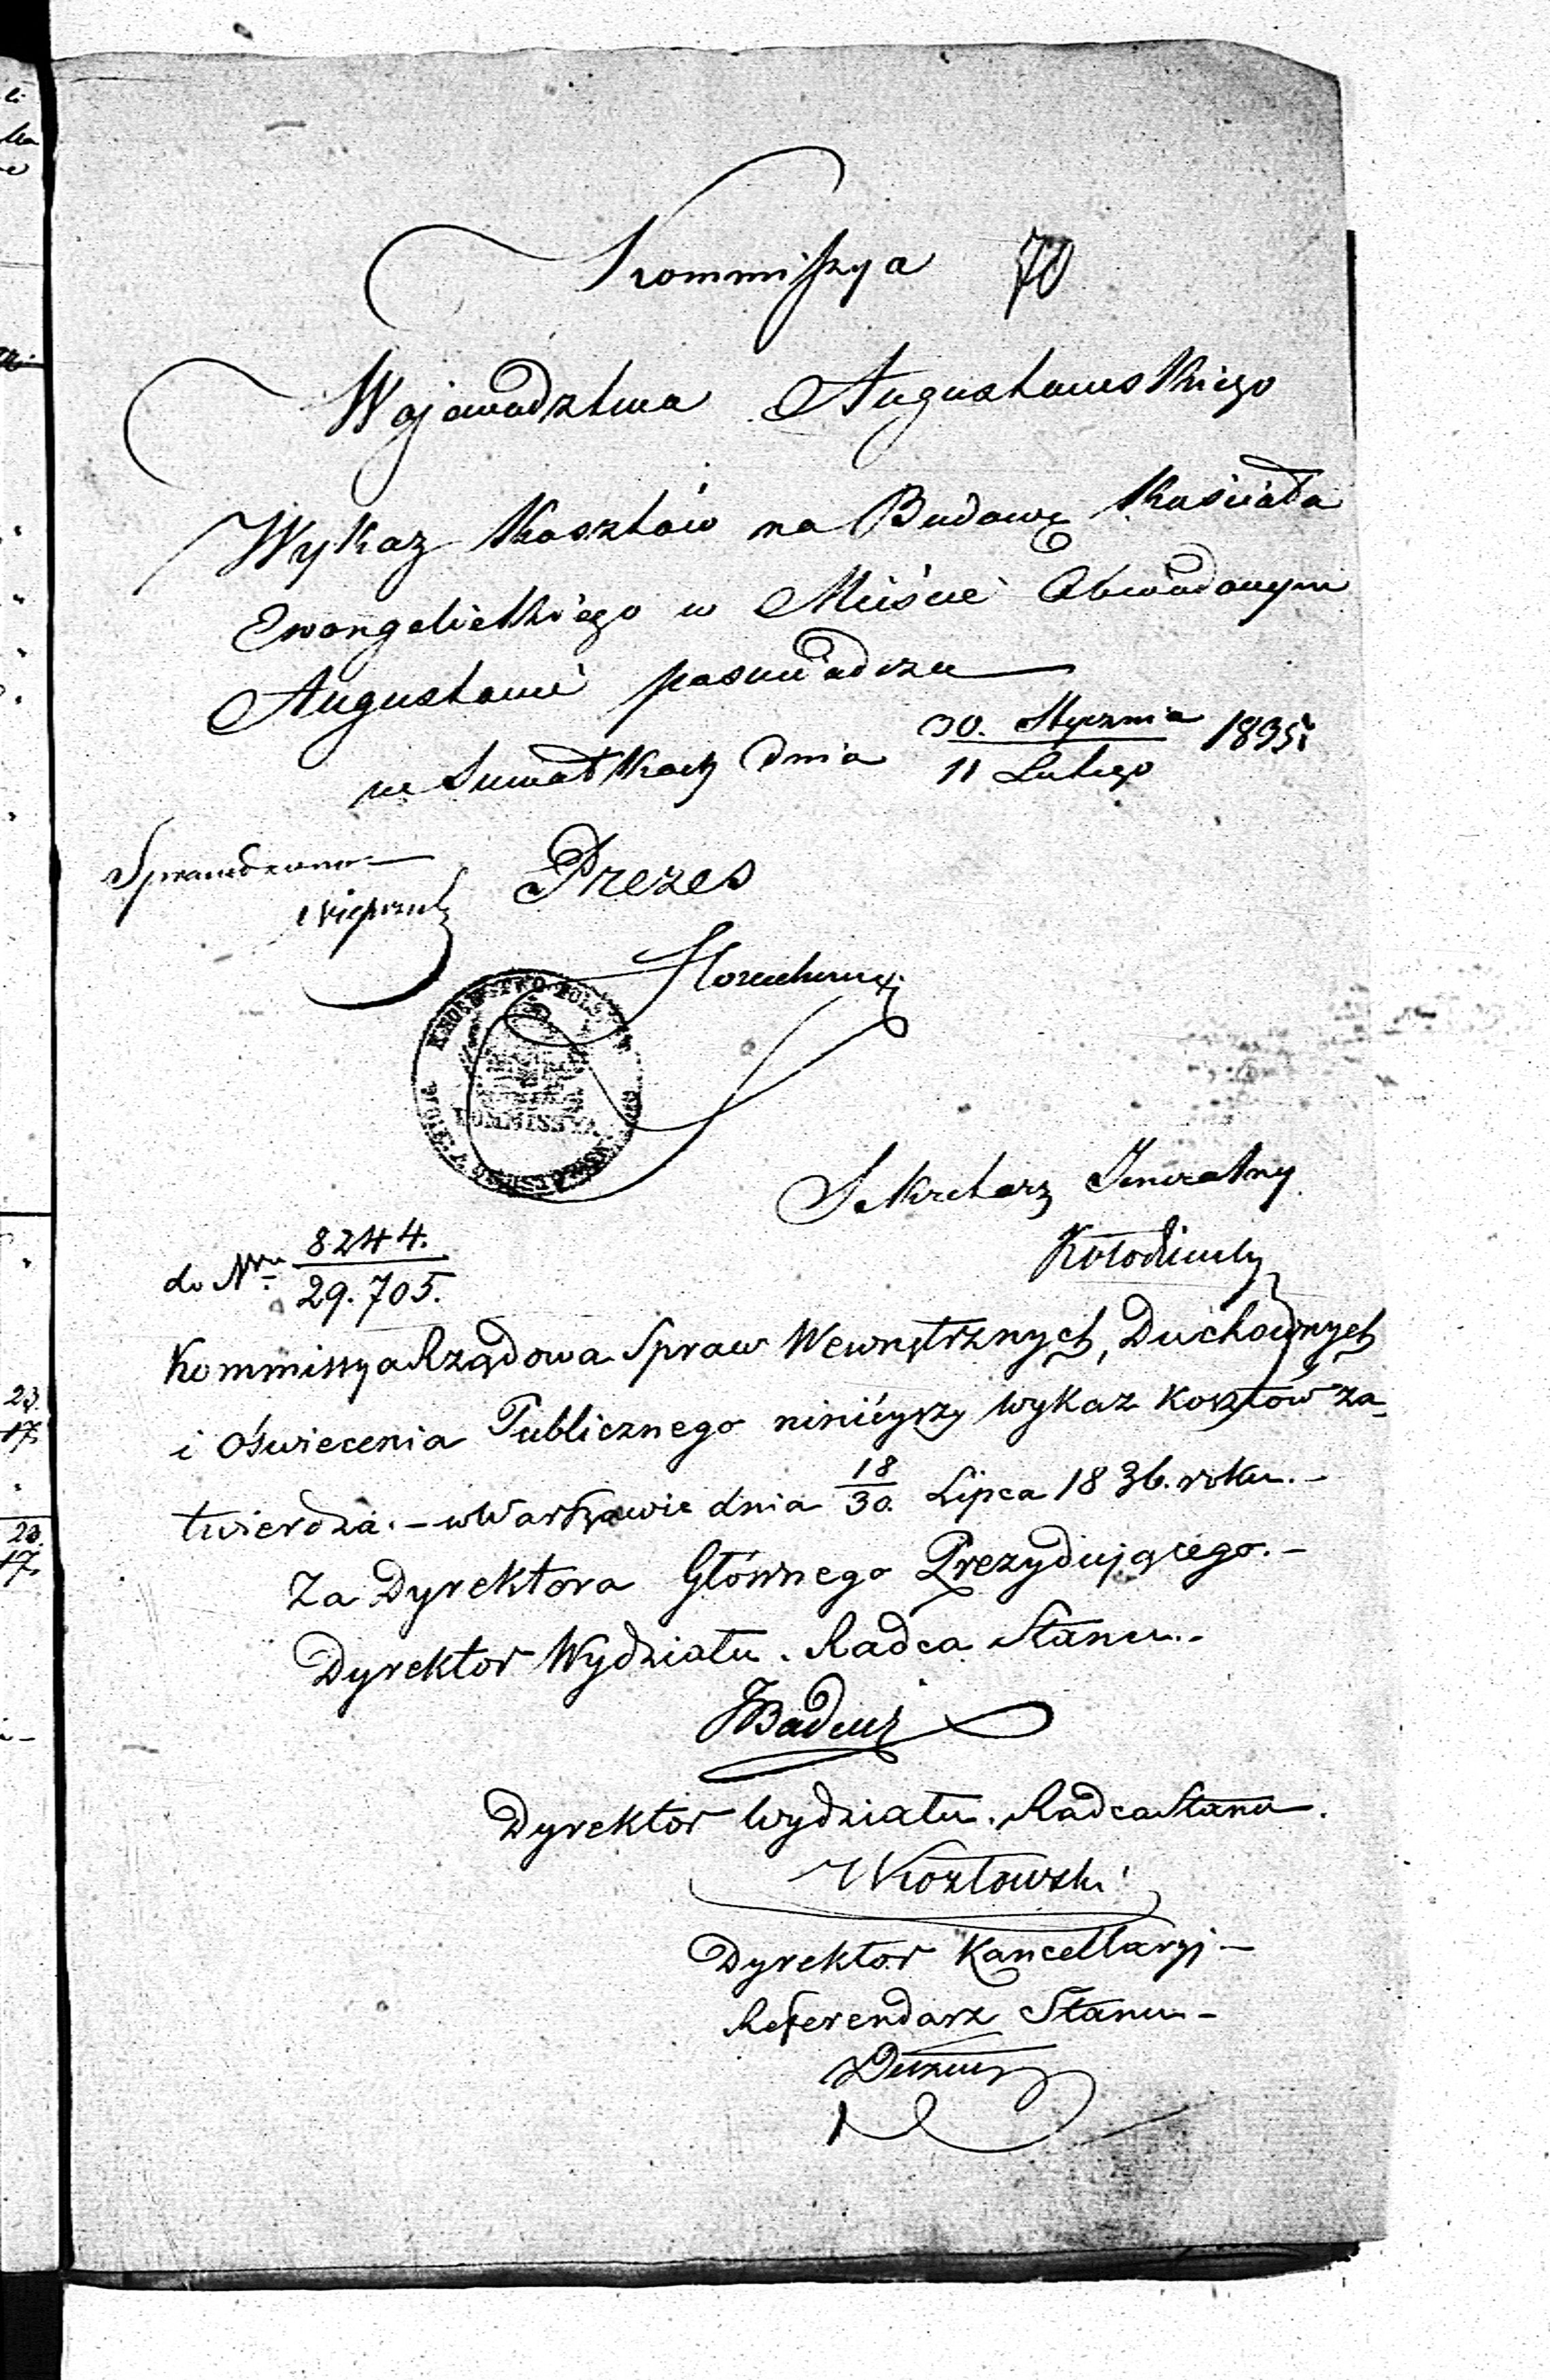 Kommissya 70
Wojewodztwa Augustowskiego
Wykaz Kosztów na Budowę Kościoła
Ewangelickiego w Mieście Obwodowym
Augustowie poswiadcza
w Suwałkach dnia 30. Stycznia / 11 Lutego 1835 r.
Sprawdzono
Prezes
KROLESTWO POLSKIE
KOMMISSYA
WOJEWODZTWA AUGUSTOWSKIEGO
Sekretarz Jeneralny
do Nru 8244. / 29.705.
Kommissya Rządowa Spraw Wewnętrznych, Duchownych
i Oświecenia Publicznego ninieyszy wykaz kosztów za-
twierdza. – w Warszawie dnia 18/30 Lipca 1836. roku. –
Za Dyrektora Głównego Prezydującego. –
Dyrektor Wydziału. Radca Stanu. –
JBadeni
Dyrektor Wydziału. Radca Stanu.
Kozłowski
Dyrektor Kancellaryi –
Referendarz Stanu –